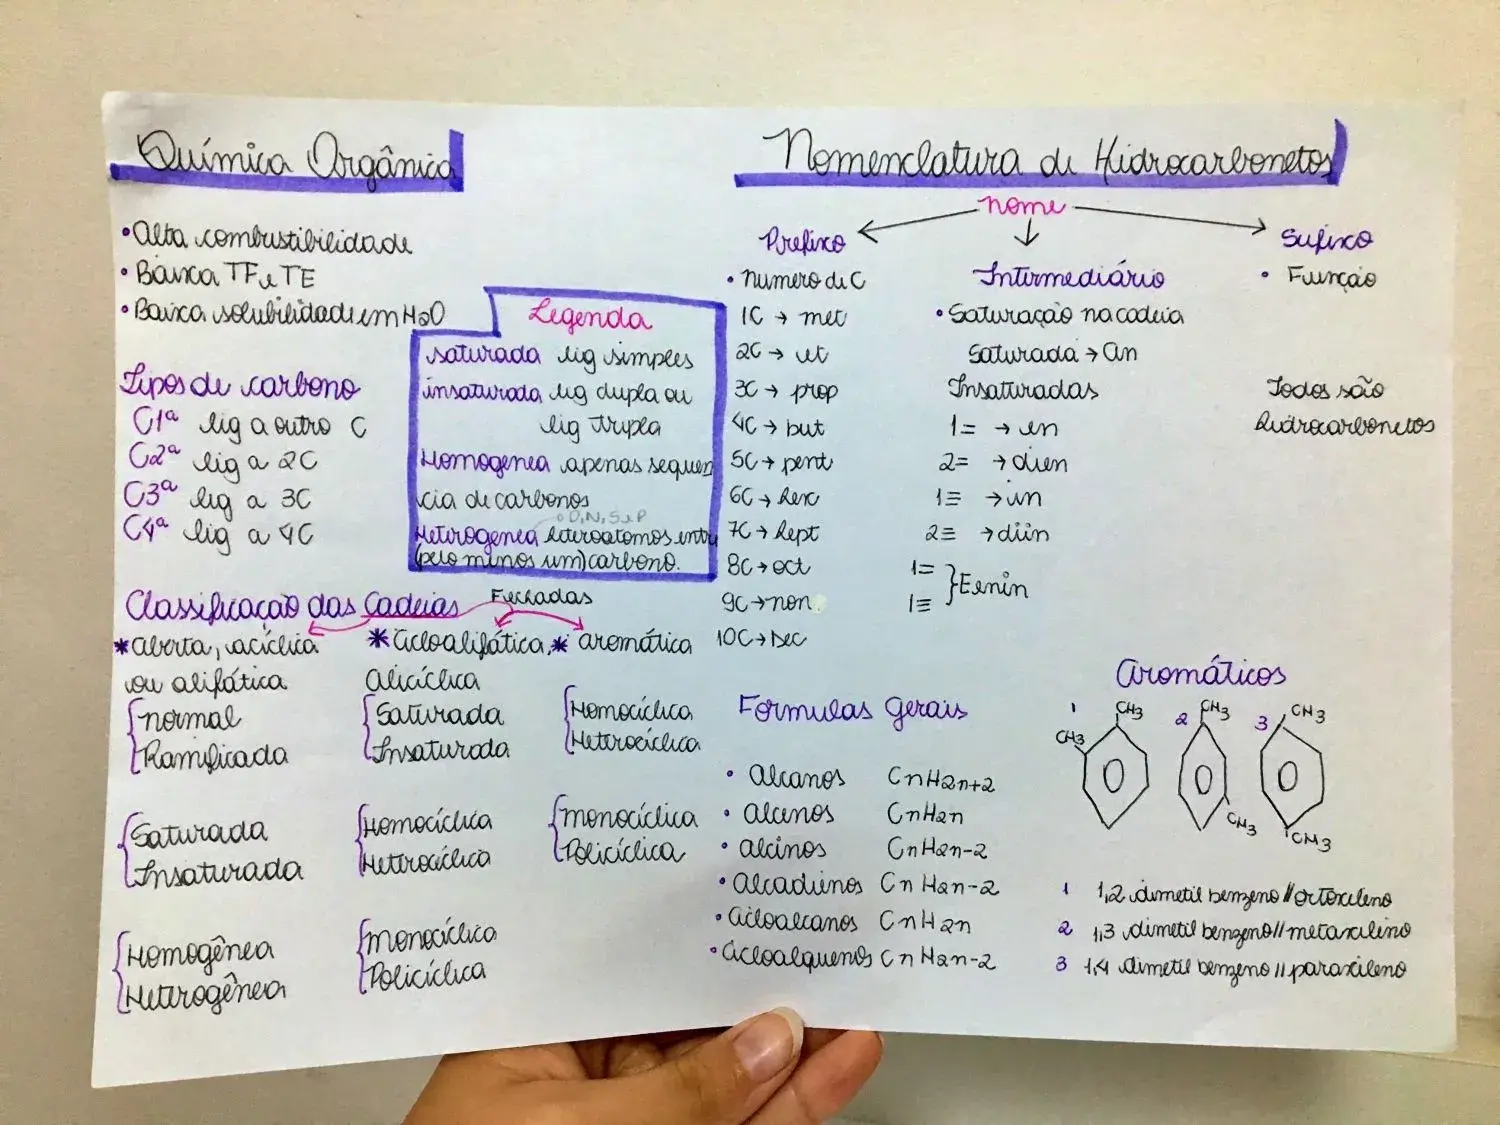 Química Orgânica
• Alta combustibilidade
• Baixa TF e TE
• Baixa solubilidade em H2O
Legenda
saturada lig simples
insaturada lig dupla ou
lig tripla
Homogenea apenas sequen
cia de carbonos
O, N, S e P
Heterogenea heteroatomos entre
(pelo minos um) carbono.
Tipos de carbono
C1ª lig a outro C
C2ª lig a 2C
C3ª lig a 3C
C4ª lig a 4C
Classificação das Cadeias
Fechadas
* Aberta, acíclica
ou alifática
normal
Ramificada
Saturada
Insaturada
Homogênea
Heterogênea
* Cicloalifática,
Alicíclica
Saturada
Insaturada
Homocíclica
Heterocíclica
monocíclica
Policíclica
* aromática
Homocíclica
Heterocíclica
monocíclica
Policíclica
Nomenclatura de Hidrocarbonetos
nome
Prefixo
• numero de C
1C → met
2C → et
3C → prop
4C → but
5C → pent
6C → hex
7C → hept
8C → oct
9C → non
10C → Dec
Intermediário
• Saturação na cadeia
Saturada → an
Insaturadas
1= → en
2= → dien
1≡ → in
2≡ → diin
1=
1≡ } Eenin
Sufixo
• Função
Todos são
hidrocarbonetos
Formulas gerais
• Alcanos CnH2n+2
• Alcenos CnH2n
• alcinos CnH2n-2
• Alcadienos CnH2n-2
• Cicloalcanos CnH2n
• Cicloalquenos CnH2n-2
Aromáticos
1 CH3
CH3
2 CH3
CH3
3 CH3
CH3
1 1,2 dimetil benzeno // ortoxileno
2 1,3 dimetil benzeno // metaxileno
3 1,4 dimetil benzeno // paraxileno